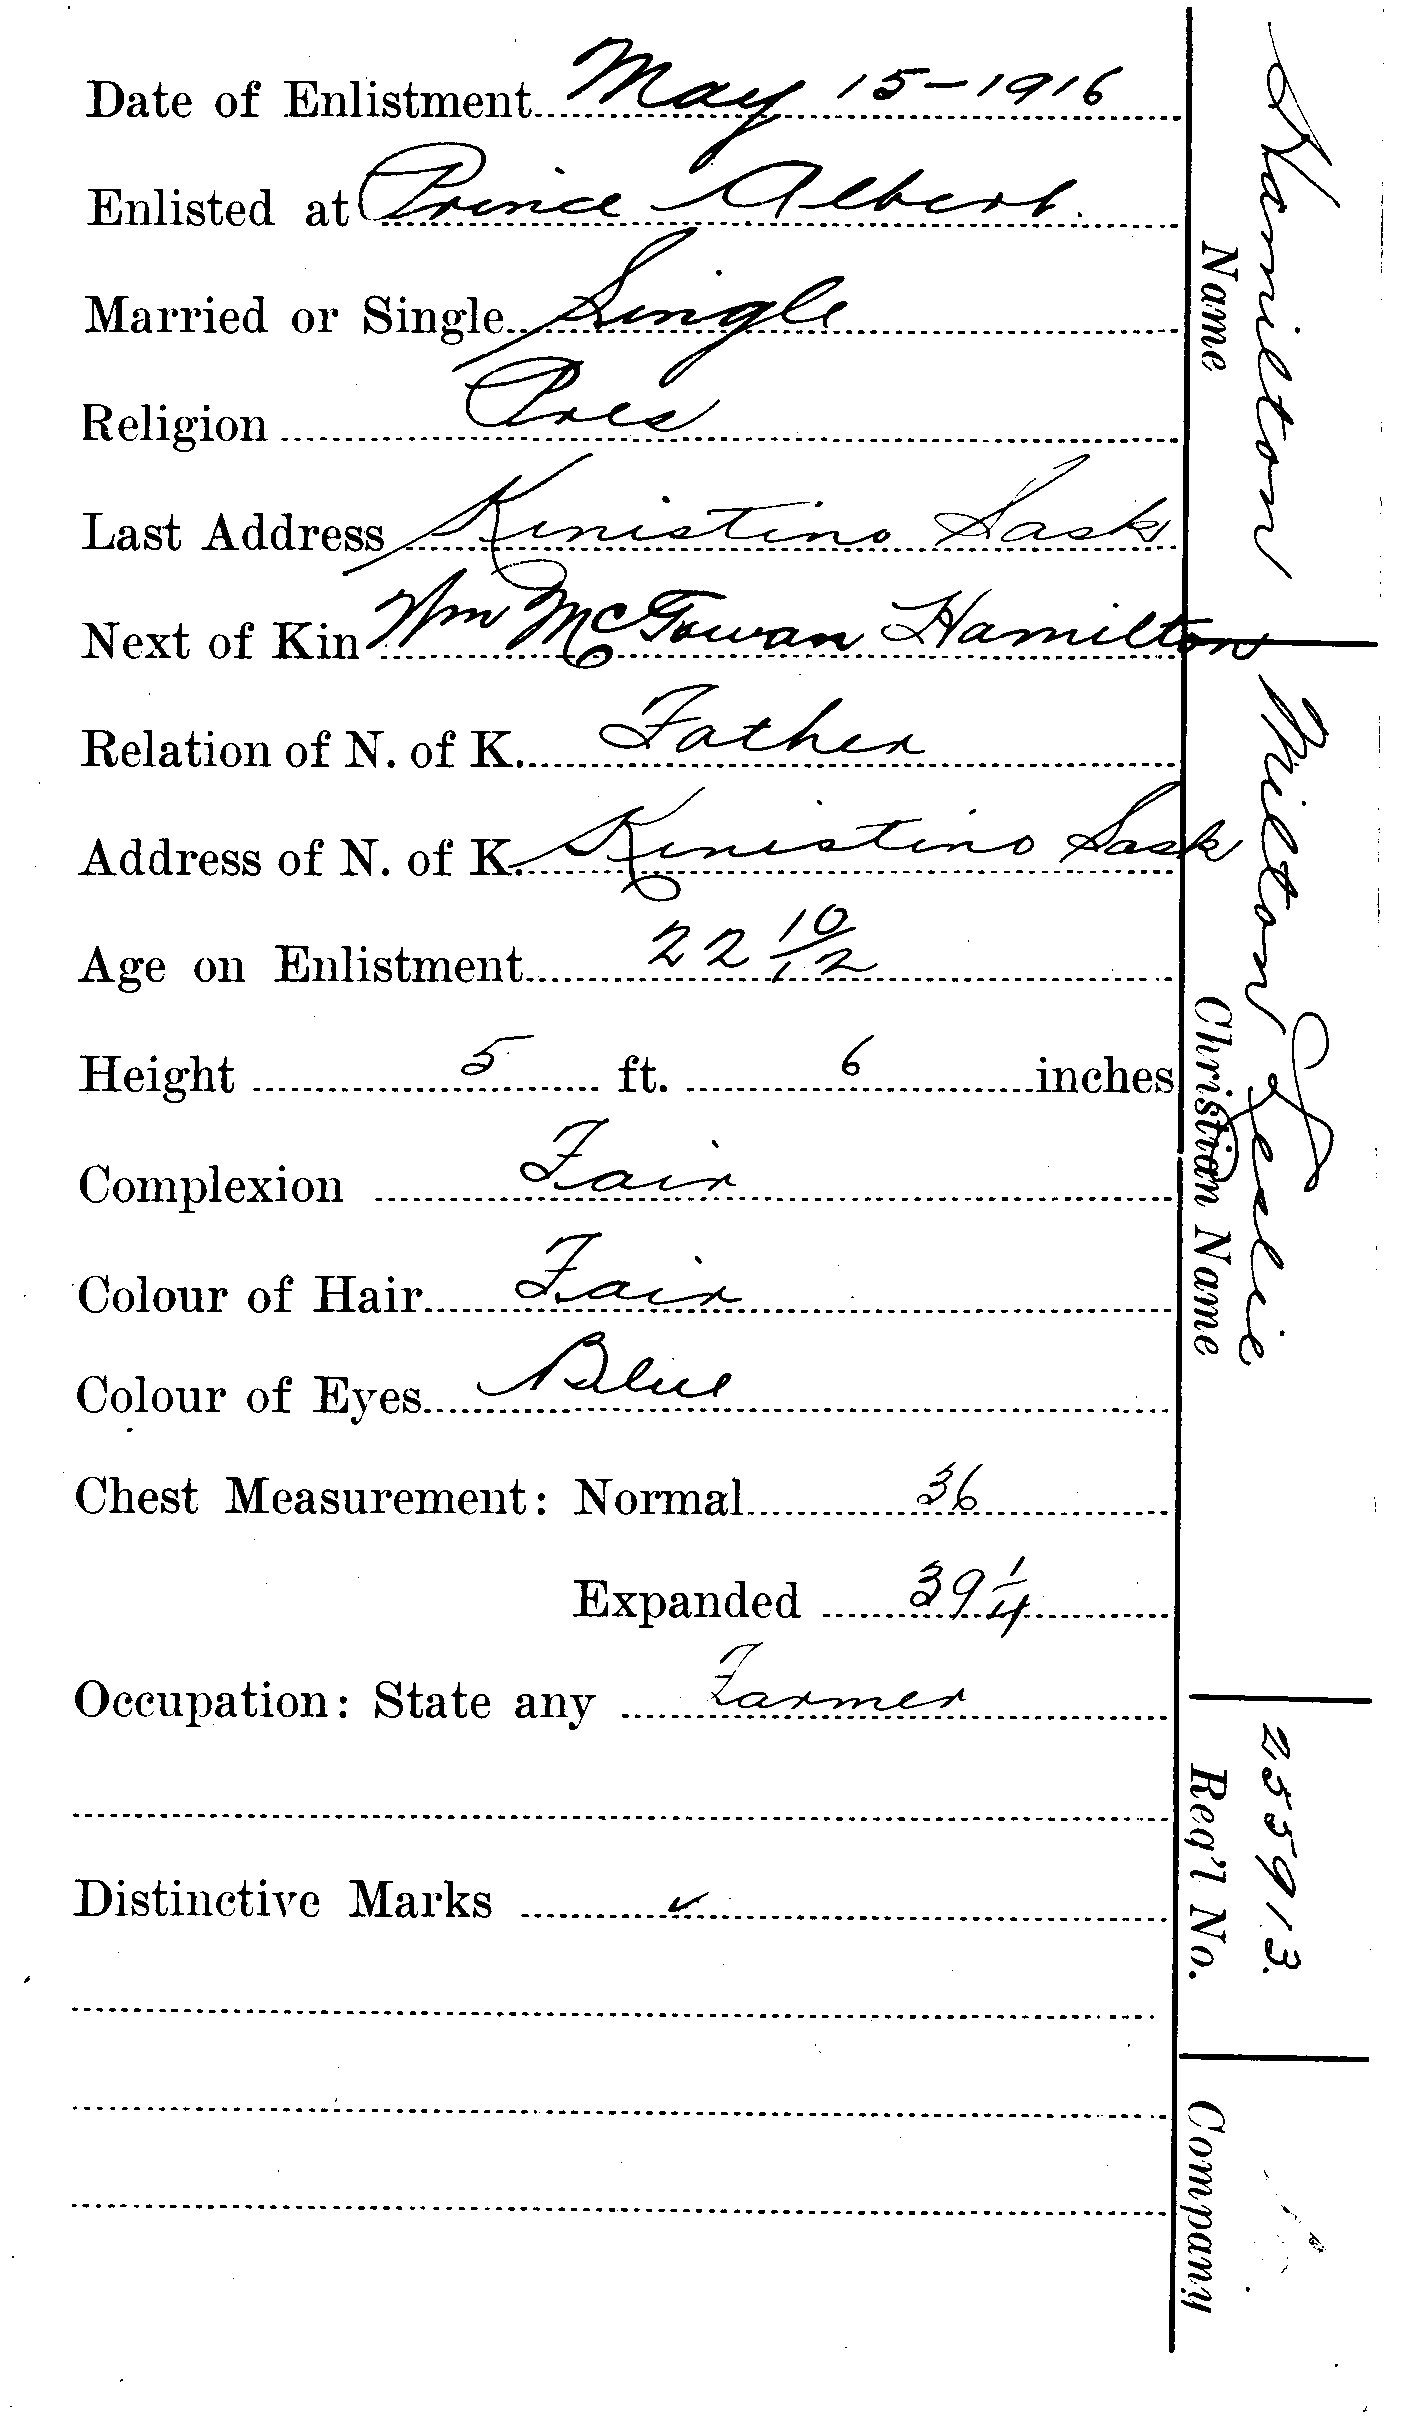 Date of Enlistment May 15-1916
Enlisted at Prince Albert.
Married or Single Single
Religion Pres
Last Address Kinistino Sask
Next of Kin Wm McGowan Hamilton
Relation of N. of K. Father
Address of N. of K. Kinistino Sask
Age on Enlistment 22 10/12
Height 5 ft. 6 inches
Complexion Fair
Colour of Hair Fair
Colour of Eyes Blue
Chest Measurement: Normal 36
Expanded 39 1/4
Occupation: State any Farmer
Distinctive Marks ✓
Hamilton
Name
Milton Leslie
Christian Name
255913.
Reg'l No.
Company